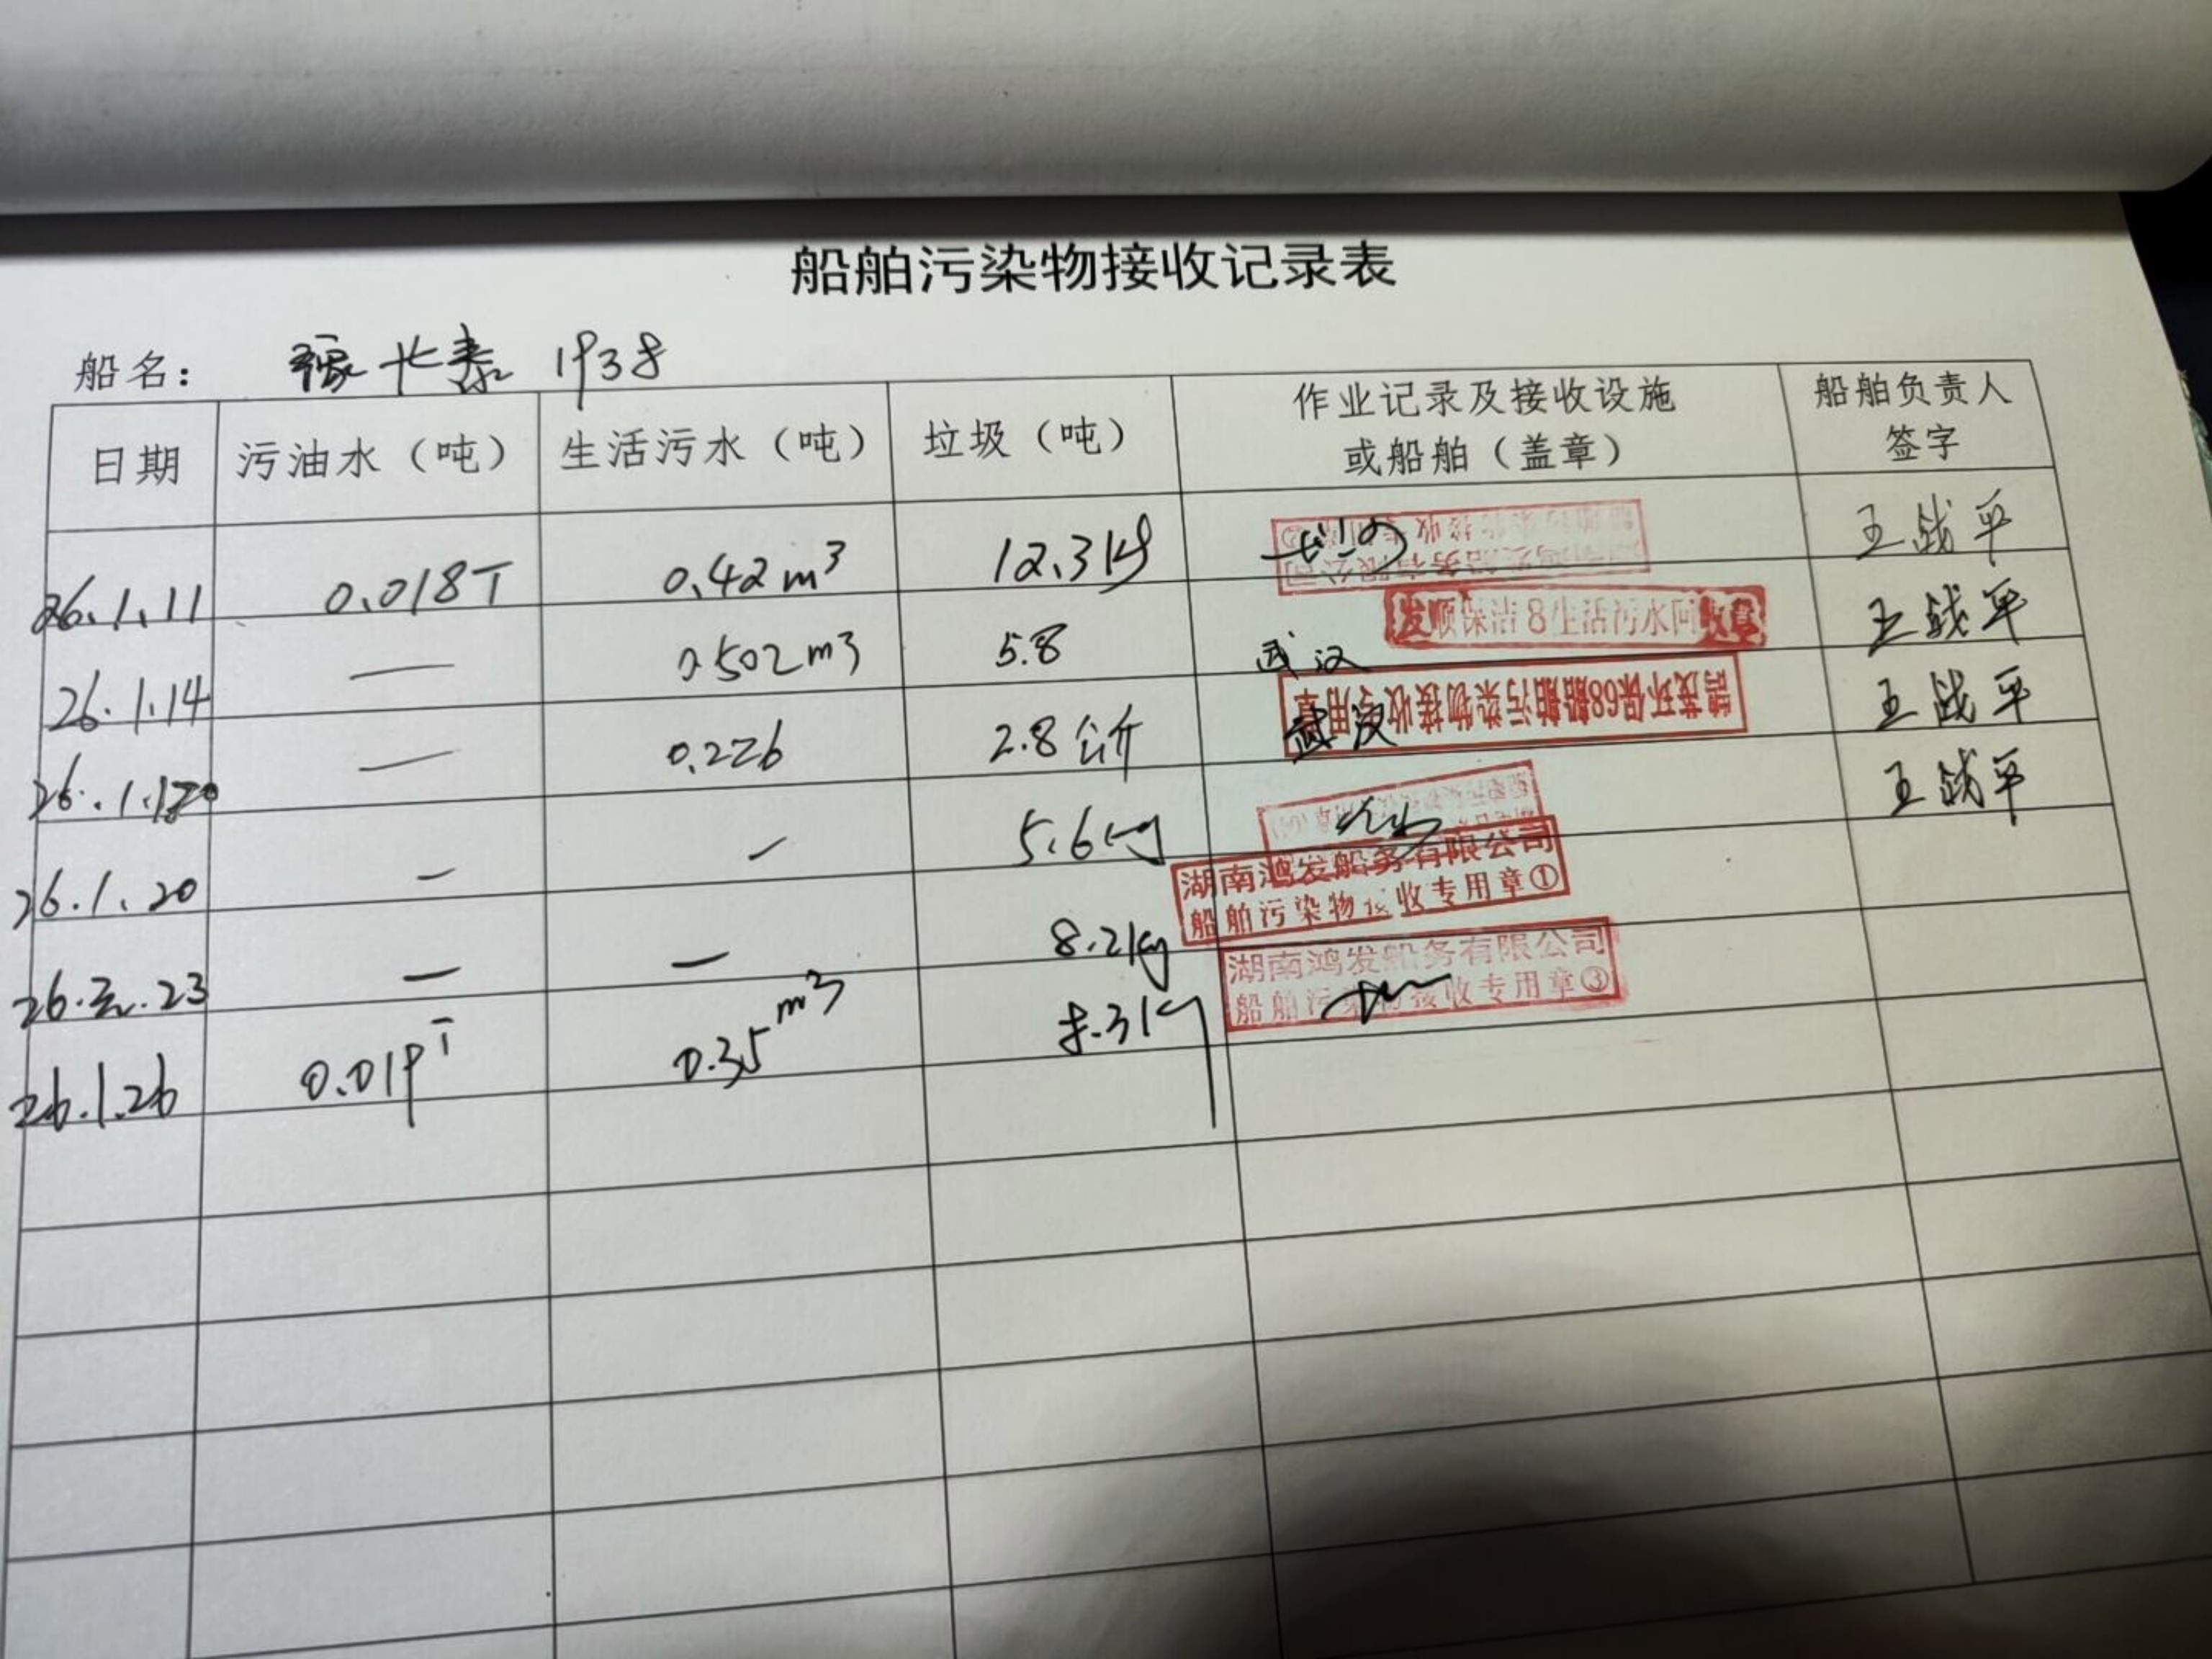 船舶污染物接收记录表
船名： 豫长泰 1938
日期 污油水（吨） 生活污水（吨） 垃圾（吨） 作业记录及接收设施或船舶（盖章） 船舶负责人签字
26.1.11 0.018T 0.42m³ 12.3kg 王战平
26.1.14 — 0.502m3 5.8 武汉 发顺保洁8生活污水回收章 王战平
26.1.17 — 0.226 2.8公斤 武汉 环保68船舶污染物接收专用章 王战平
26.1.20 — — 5.6kg 王战平
26.1.23 — — 8.2kg 湖南鸿发船务有限公司
船舶污染物接收专用章①
26.1.26 0.019T 0.35m3 8.3kg 湖南鸿发船务有限公司
船舶污染物接收专用章③